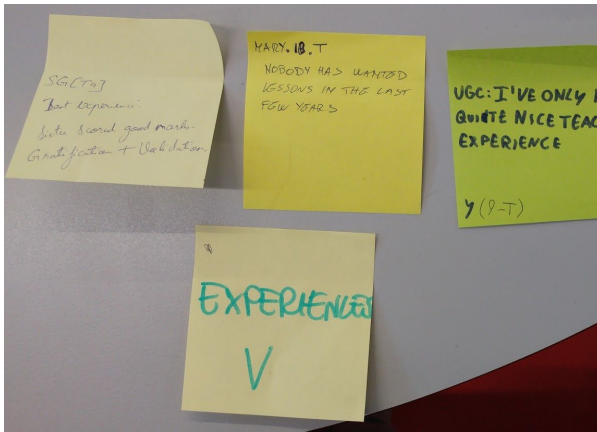 SG[T4]
Best experience:
Sister Scored good mark.
Gratification + Validation
MARY.18.T
NOBODY HAS WANTED
LESSONS IN THE LAST
FEW YEARS
UGC: I'VE ONLY
QUITE NICE TEAC
EXPERIENCE
Y (9-T)
EXPERIENCES
V